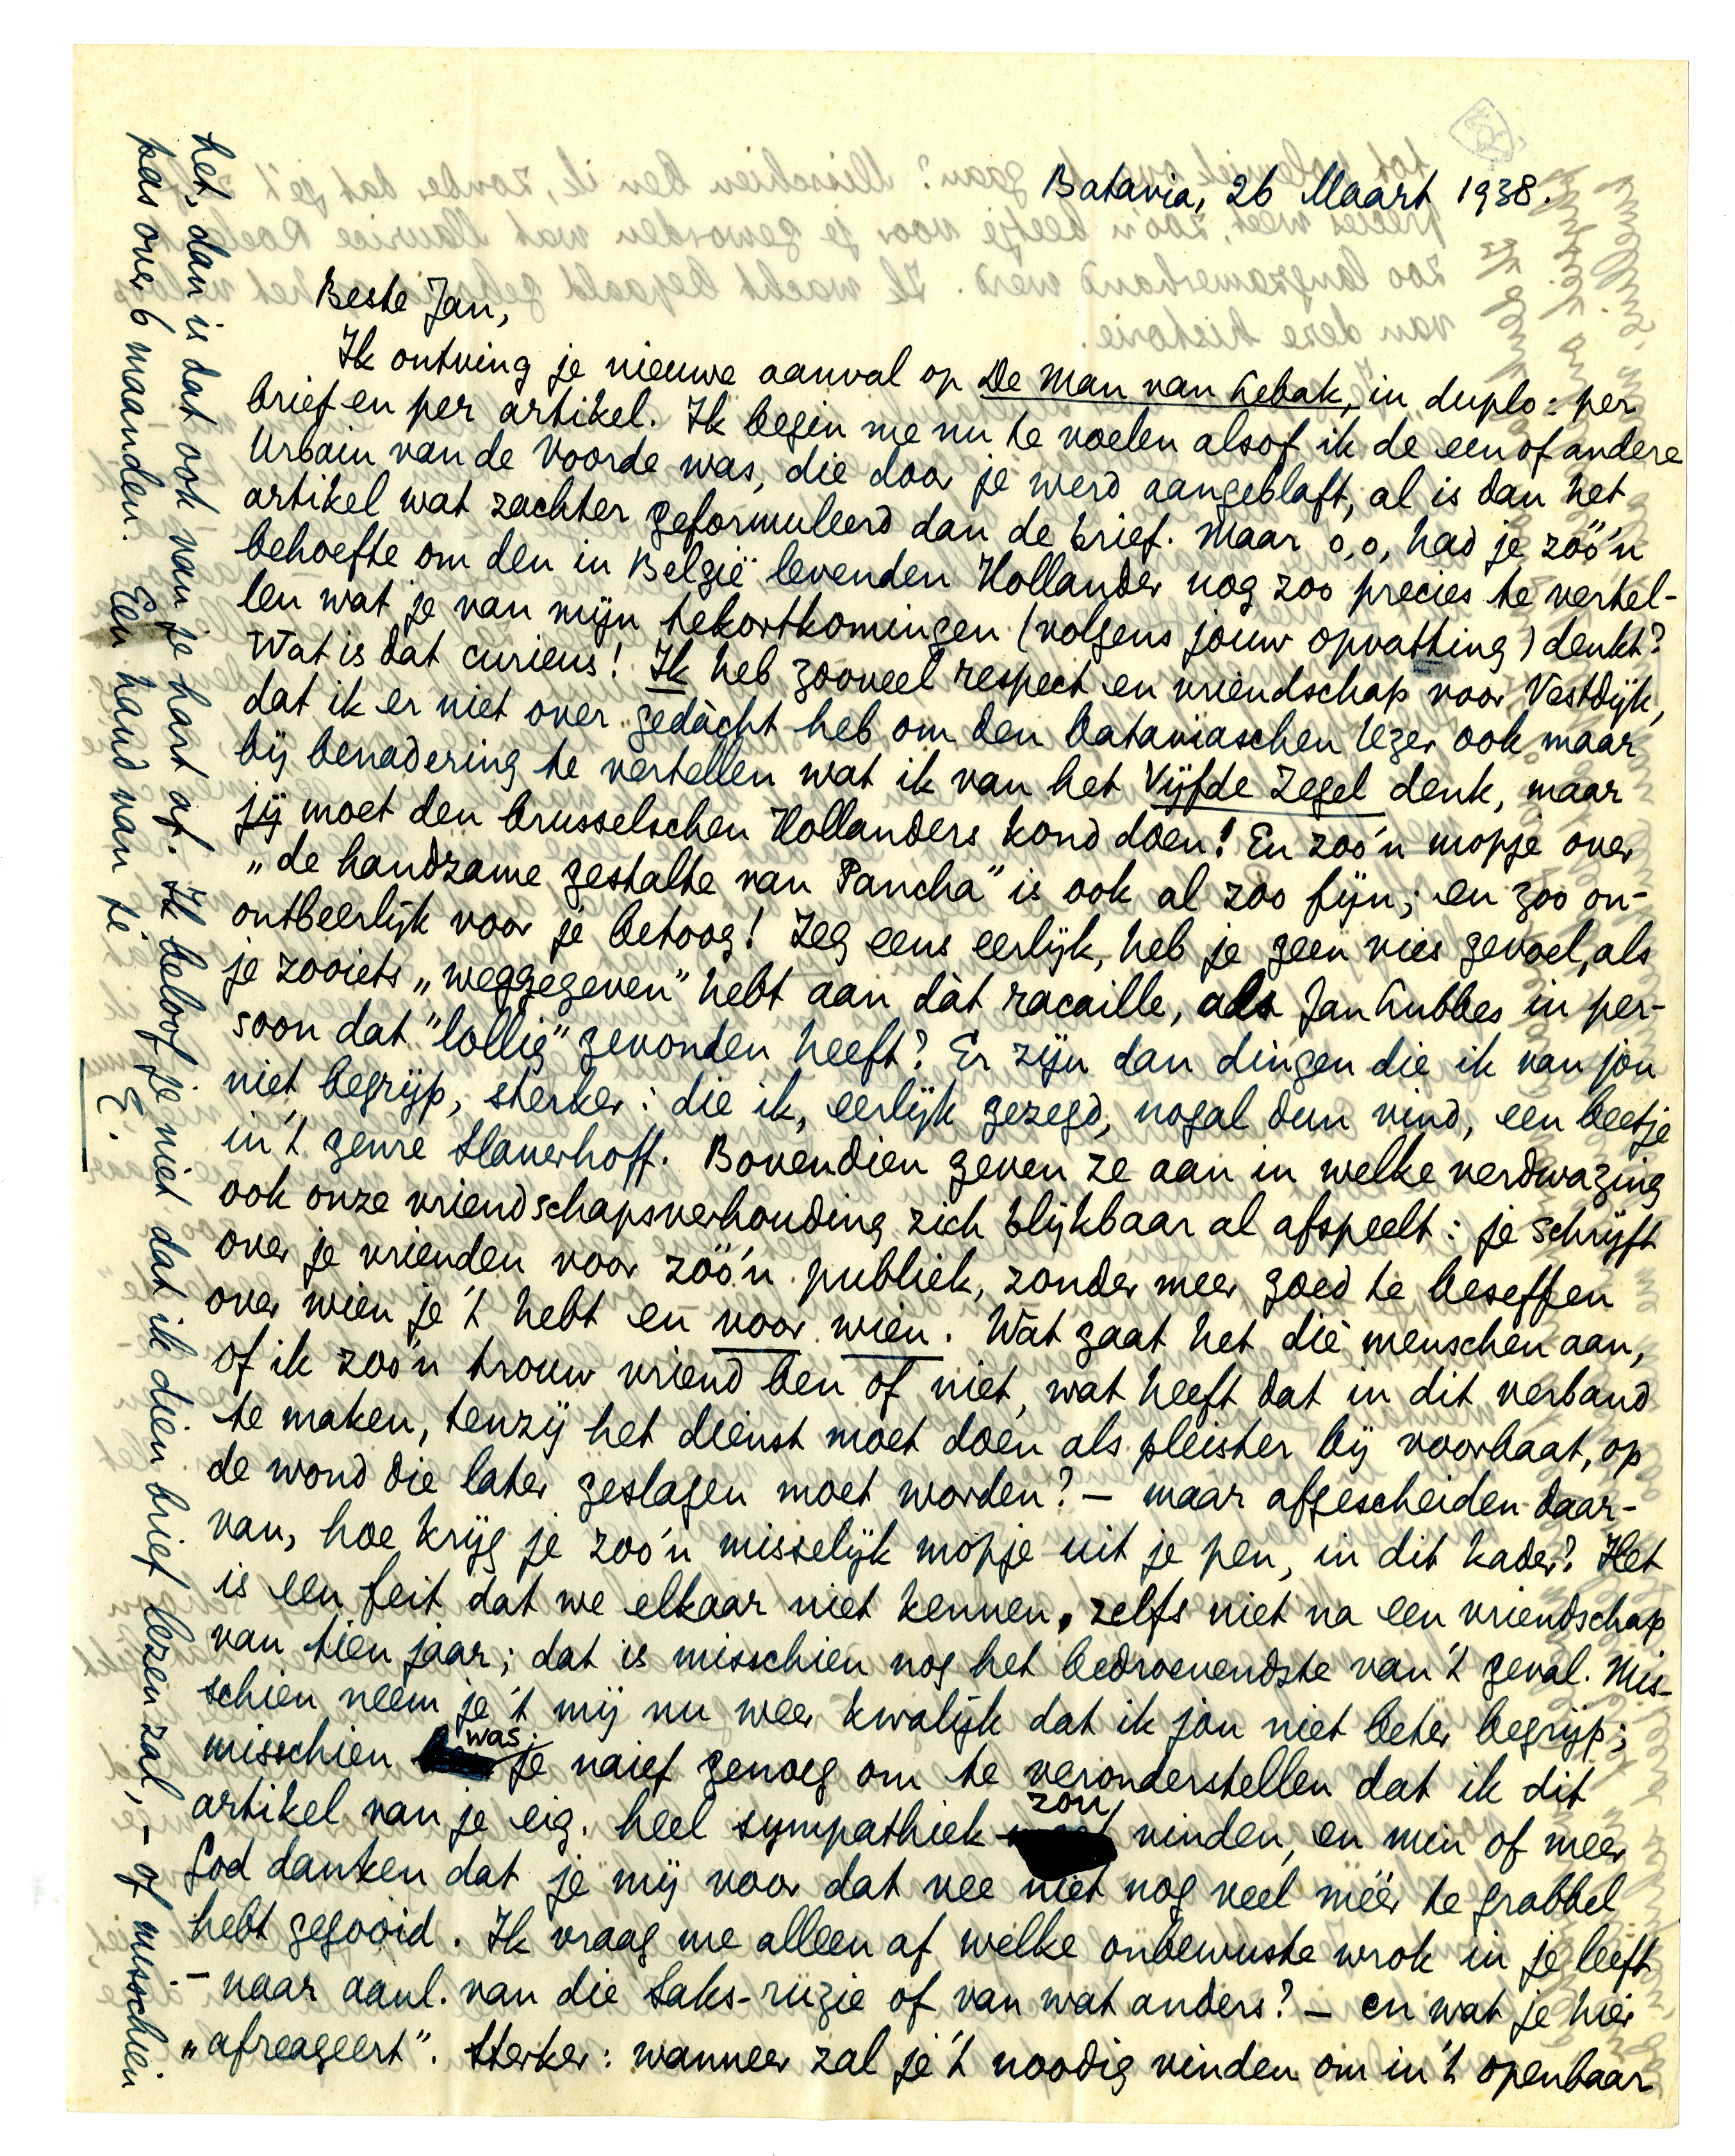 Batavia, 26 Maart 1938.
Beste Jan,
Ik ontving je nieuwe aanval op De Man van Lebak, in duplo: per
brief en per artikel. Ik begin me nu te voelen alsof ik de een of andere
Urbain van de Voorde was, die door je werd aangeblaft, al is dan het
artikel wat zachter geformuleerd dan de brief. Maar o, o, had je zóó'n
behoefte om den in België levenden Hollander nog zoo precies te vertel-
len wat je van mijn tekortkomingen (volgens jouw opvatting) denkt?
Wat is dat curieus! Ik heb zooveel respect en vriendschap voor Vestdijk,
dat ik er niet over gedàcht heb om den bataviaschen lezer ook maar
bij benadering te vertellen wat ik van het Vijfde Zegel denk, maar
jij moet den brusselschen Hollanders kond doen! En zoo'n mopje over
„de handzame gestalte van Pancha" is ook al zoo fijn; en zoo on-
ontbeerlijk voor je betoog! Zeg eens eerlijk, heb je geen vies gevoel, als
je zooiets „weggegeven" hebt aan dàt racaille, als Jan Lubbes in per-
soon dat "lollig" gevonden heeft? Er zijn dan dingen die ik van jou
niet begrijp, sterker: die ik, eerlijk gezegd, nogal dun vind, een beetje
in 't genre Slauerhoff. Bovendien geven ze aan in welke verdwazing
ook onze vriendschapsverhouding zich blijkbaar al afspeelt: je schrijft
over je vrienden voor zóó'n publiek, zonder meer goed te beseffen
over wien je 't hebt en voor wien. Wat gaat het die menschen aan,
of ik zoo'n trouw vriend ben of niet, wat heeft dat in dit verband
te maken, tenzij het dienst moet doen als pleister bij voorbaat, op
de wond die later geslagen moet worden? – maar afgescheiden daar-
van, hoe krijg je zoo'n misselijk mopje uit je pen, in dit kader? Het
is een feit dat we elkaar niet kennen, zelfs niet na een vriendschap
van tien jaar; dat is misschien nog het bedroevendste van 't geval. Mis-
schien neem je 't mij nu weer kwalijk dat ik jou niet beter begrijp;
misschien was je naief genoeg om te veronderstellen dat ik dit
artikel van je eig. heel sympathiek zou vinden, en min of meer
God danken dat je mij voor dat vee niet nog veel méér te grabbel
hebt gegooid. Ik vraag me alleen af welke onbewuste wrok in je leeft
– naar aanl. van die Saks-ruzie of van wat anders? – en wat je hier
„afreageert". Sterker: wanneer zal je 't noodig vinden om in 't openbaar
het, dan is dat ook van je hart af. Ik beloof je niet dat ik dien brief lezen zal, – of misschien
pas over 6 maanden. Een hand van je
E.